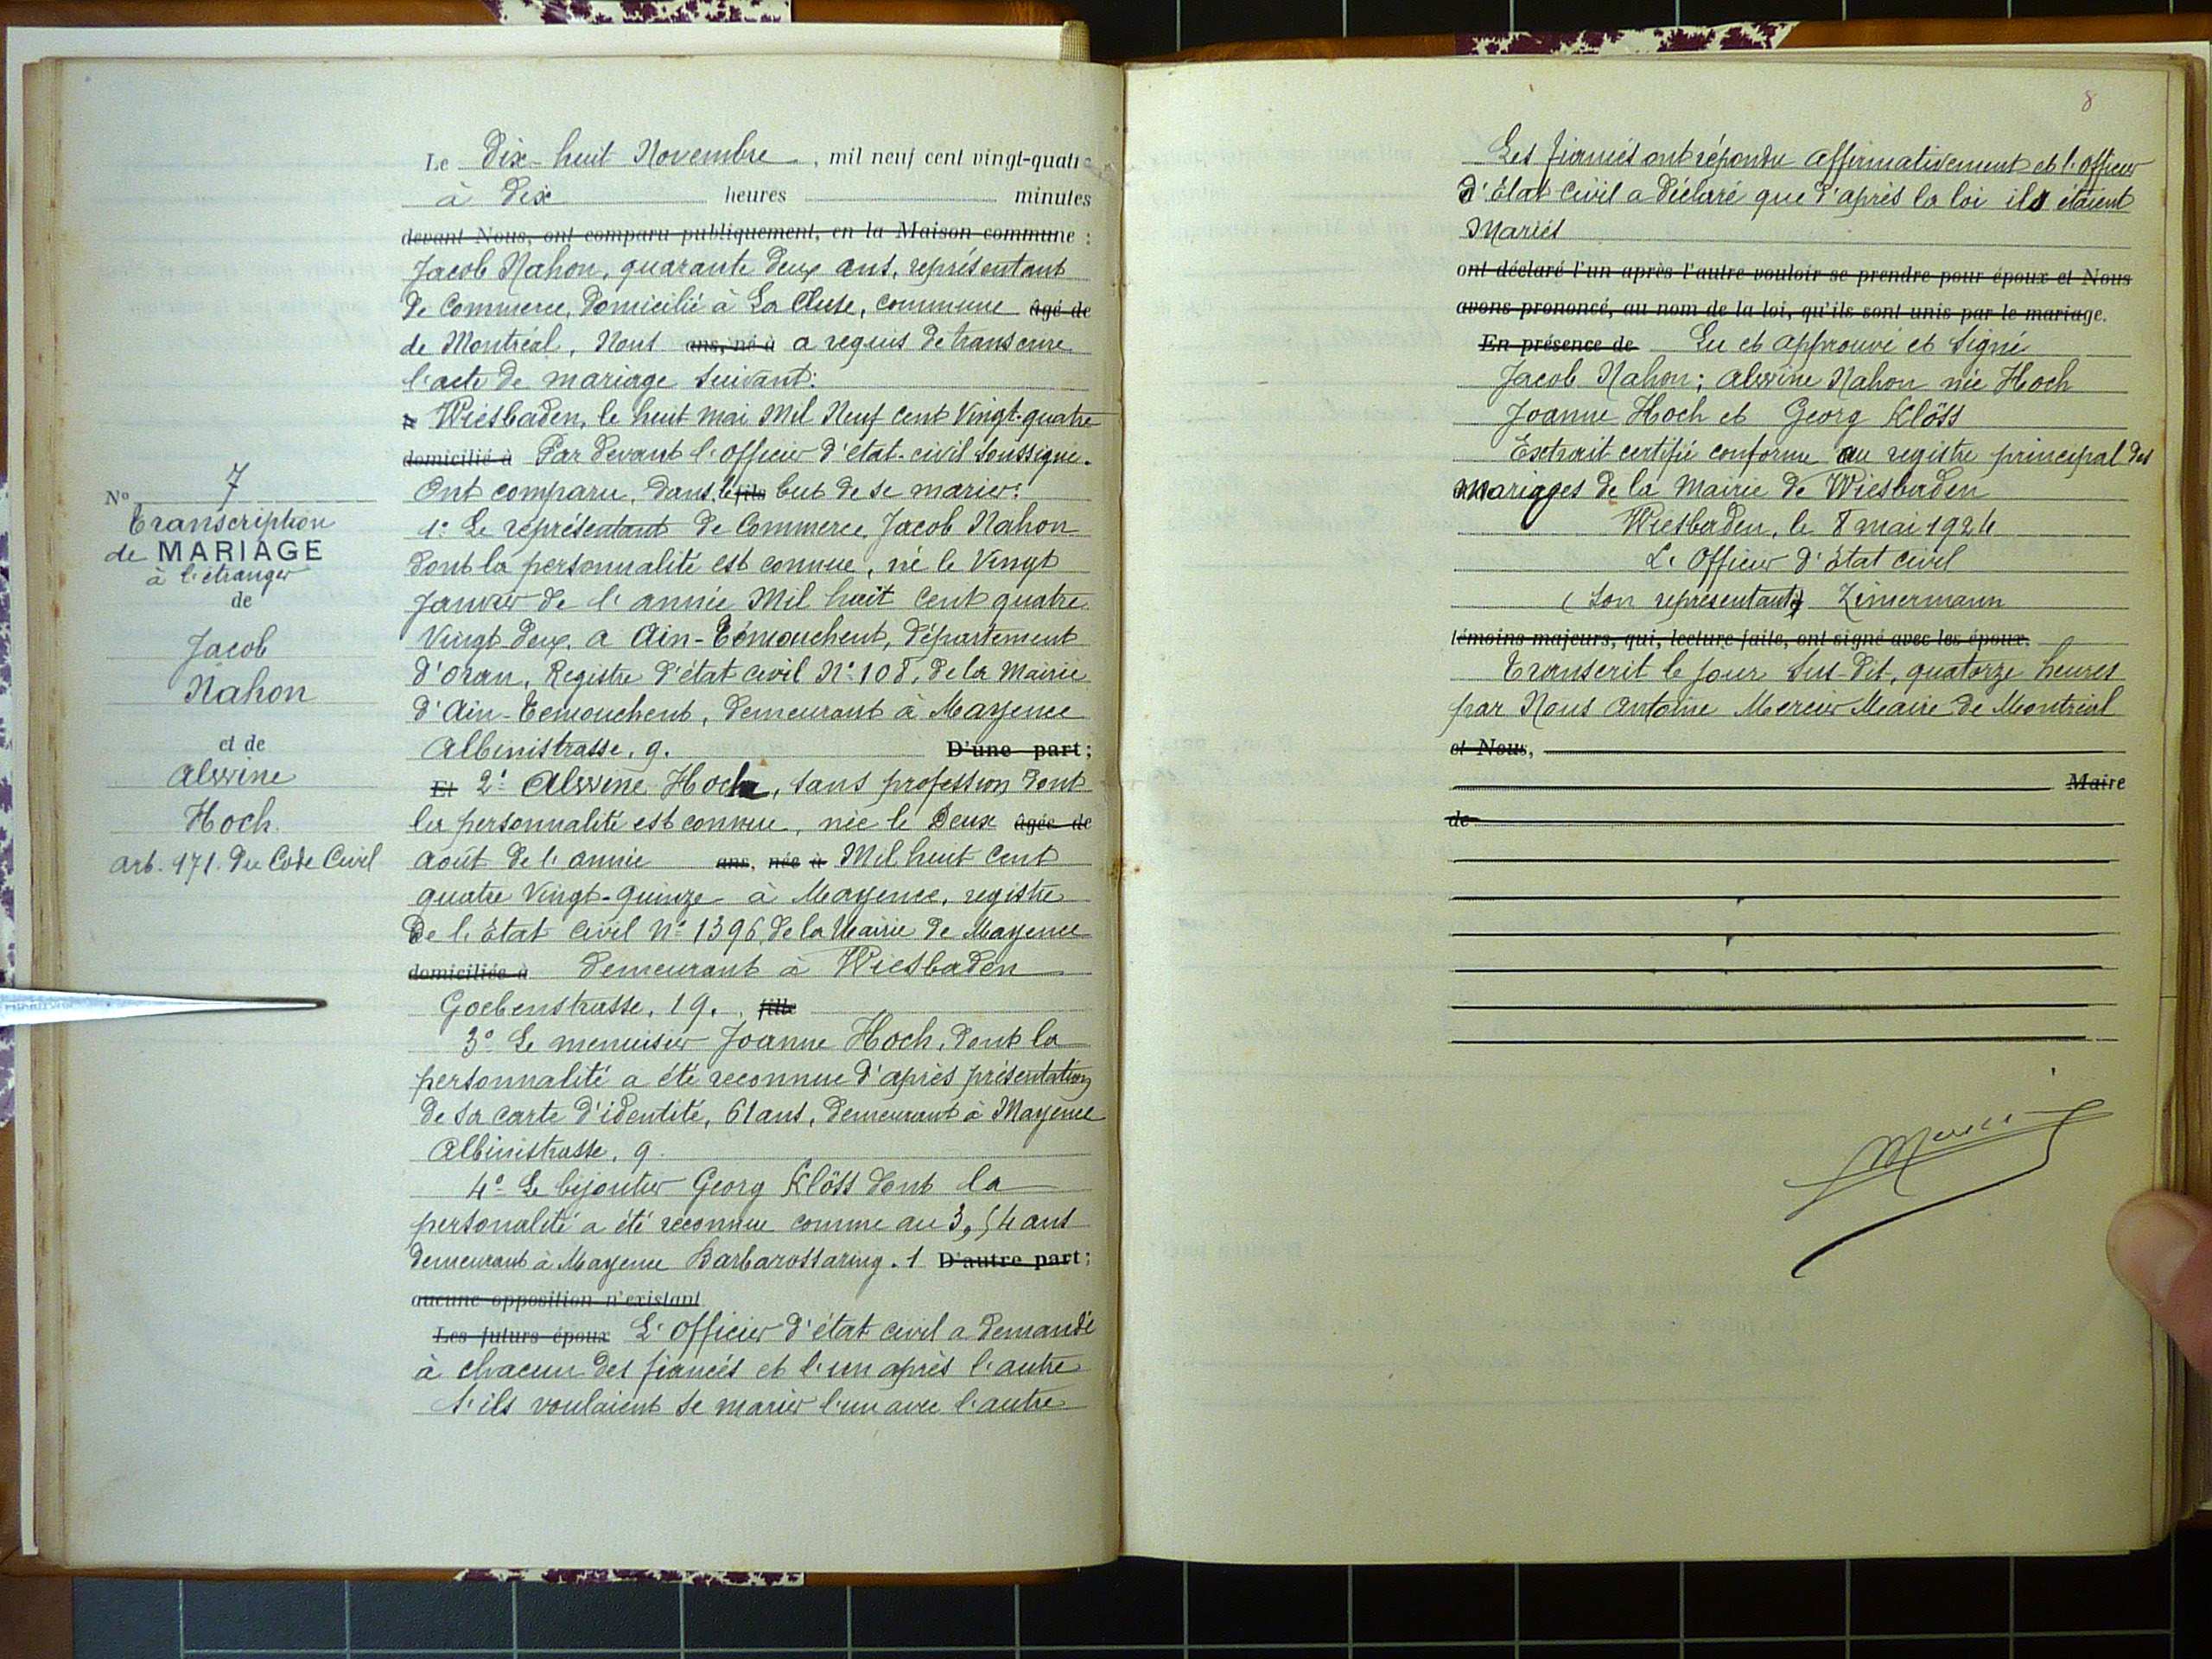 N° 7
Transcription
de MARIAGE
à l'étranger
de
Jacob
Nahon
et de
Alwine
Hoch
art. 171. Du Code Civil
Le Dix-huit Novembre, mil neuf cent vingt-quatre
à Dix heures minutes
devant Nous, ont comparu publiquement, en la Maison commune :
Jacob Nahon, quarante deux ans, représentant
de Commerce, Domicilié à La Cluse, commune âgé de
de Montréal, Nous ans, né à a requis de transcrire
l'acte de mariage suivant:
Wiesbaden, le huit mai Mil Neuf Cent Vingt-quatre
domicilié à Par devant l'officier d'état-civil soussigné.
Ont comparu, dans le fils but de se marier:
1° Le représentant de Commerce, Jacob Nahon
dont la personnalité est connue, né le Vingt
Janvier de l'année Mil huit Cent quatre
Vingt deux, a Ain-Témouchent, Département
d'Oran, Registre d'état civil N° 108, de la Mairie
d'Ain-Temouchent, demeurant à Mayence
Albinistrasse, 9. D'une part;
Et 2° Alwine Hoch, sans profession dont
la personnalité est connue, née le Deux âgée de
août de l'année ans, née à Mil huit Cent
quatre Vingt-quinze à Mayence, registre
de l'Etat Civil N° 1396, de la Mairie de Mayence
domiciliée à demeurant à Wiesbaden
Goebenstrasse, 19. fille
3° Le menuisier Joanne Hoch, dont la
personnalité a été reconnue d'après présentation
de sa carte d'identité, 61 ans, demeurant à Mayence
Albinistrasse, 9.
4° Le bijoutier Georg Klöss dont la
personalité a été reconnue comme au 3, 54 ans
demeurant à Mayence Barbarossaring. 1 D'autre part;
aucune opposition n'existant
Les futurs époux L'officier d'état civil a demandé
à chacun des fiancés et l'un après l'autre
s'ils voulaient se marier l'un avec l'autre
8
Les fiancés ont répondu affirmativement et l'officier
d'Etat Civil a déclaré que d'après la loi ils étaient
Mariés
ont déclaré l'un après l'autre vouloir se prendre pour époux et Nous
avons prononcé, au nom de la loi, qu'ils sont unis par le mariage.
En présence de Lu et approuvé et signé
Jacob Nahon; Alwine Nahon née Hoch
Joanne Hoch et Georg Klöss
Extrait certifié conforme au registre principal des
mariages de la Mairie de Wiesbaden
Wiesbaden, le 8 mai 1924
L'Officier d'Etat Civil
(Son représentant) Zimermann
témoins majeurs, qui, lecture faite, ont signé avec les époux.
Transcrit le jour sus-dit, quatorze heures
par Nous Antoine Mercier Maire de Montréal
et Nous,
Maire
de
Mercier